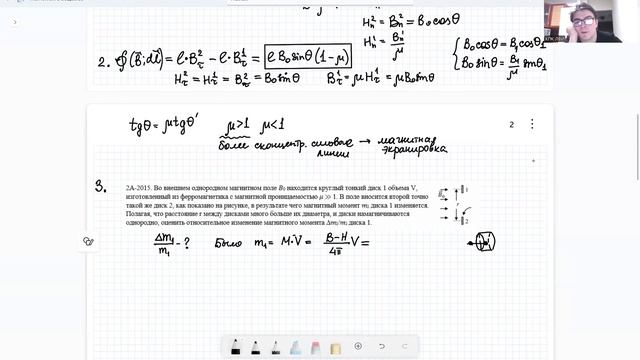 Hₙ² = Bₙ² = B₀cosθ
Hₙ¹ = Bₙ¹/μ
{ B₀cosθ = B₁cosθ₁
B₀sinθ = B₁/μ sinθ₁
2. ∮(B⃗; dl⃗) = ℓ·B_τ² − ℓ·B_τ¹ = ℓ B₀sinθ(1−μ)
H_τ² = H_τ¹ = B_τ² = B₀sinθ B_τ¹ = μH_τ¹ = μB₀sinθ
tgθ = μtgθ' μ>1 μ<1
более сконцентр. силовые линии → магнитная экранировка
2
3.
2А-2015. Во внешнем однородном магнитном поле B₀ находится круглый тонкий диск 1 объема V,
изготовленный из ферромагнетика с магнитной проницаемостью μ ≫ 1. В поле вносится второй точно
такой же диск 2, как показано на рисунке, в результате чего магнитный момент m₁ диска 1 изменяется.
Полагая, что расстояние r между дисками много больше их диаметра, и диски намагничиваются
однородно, оценить относительное изменение магнитного момента Δm₁/m₁ диска 1.
B₀
1
r
2
Δm₁/m₁ − ? Было m₁ = M·V = (B−H)/4π V =